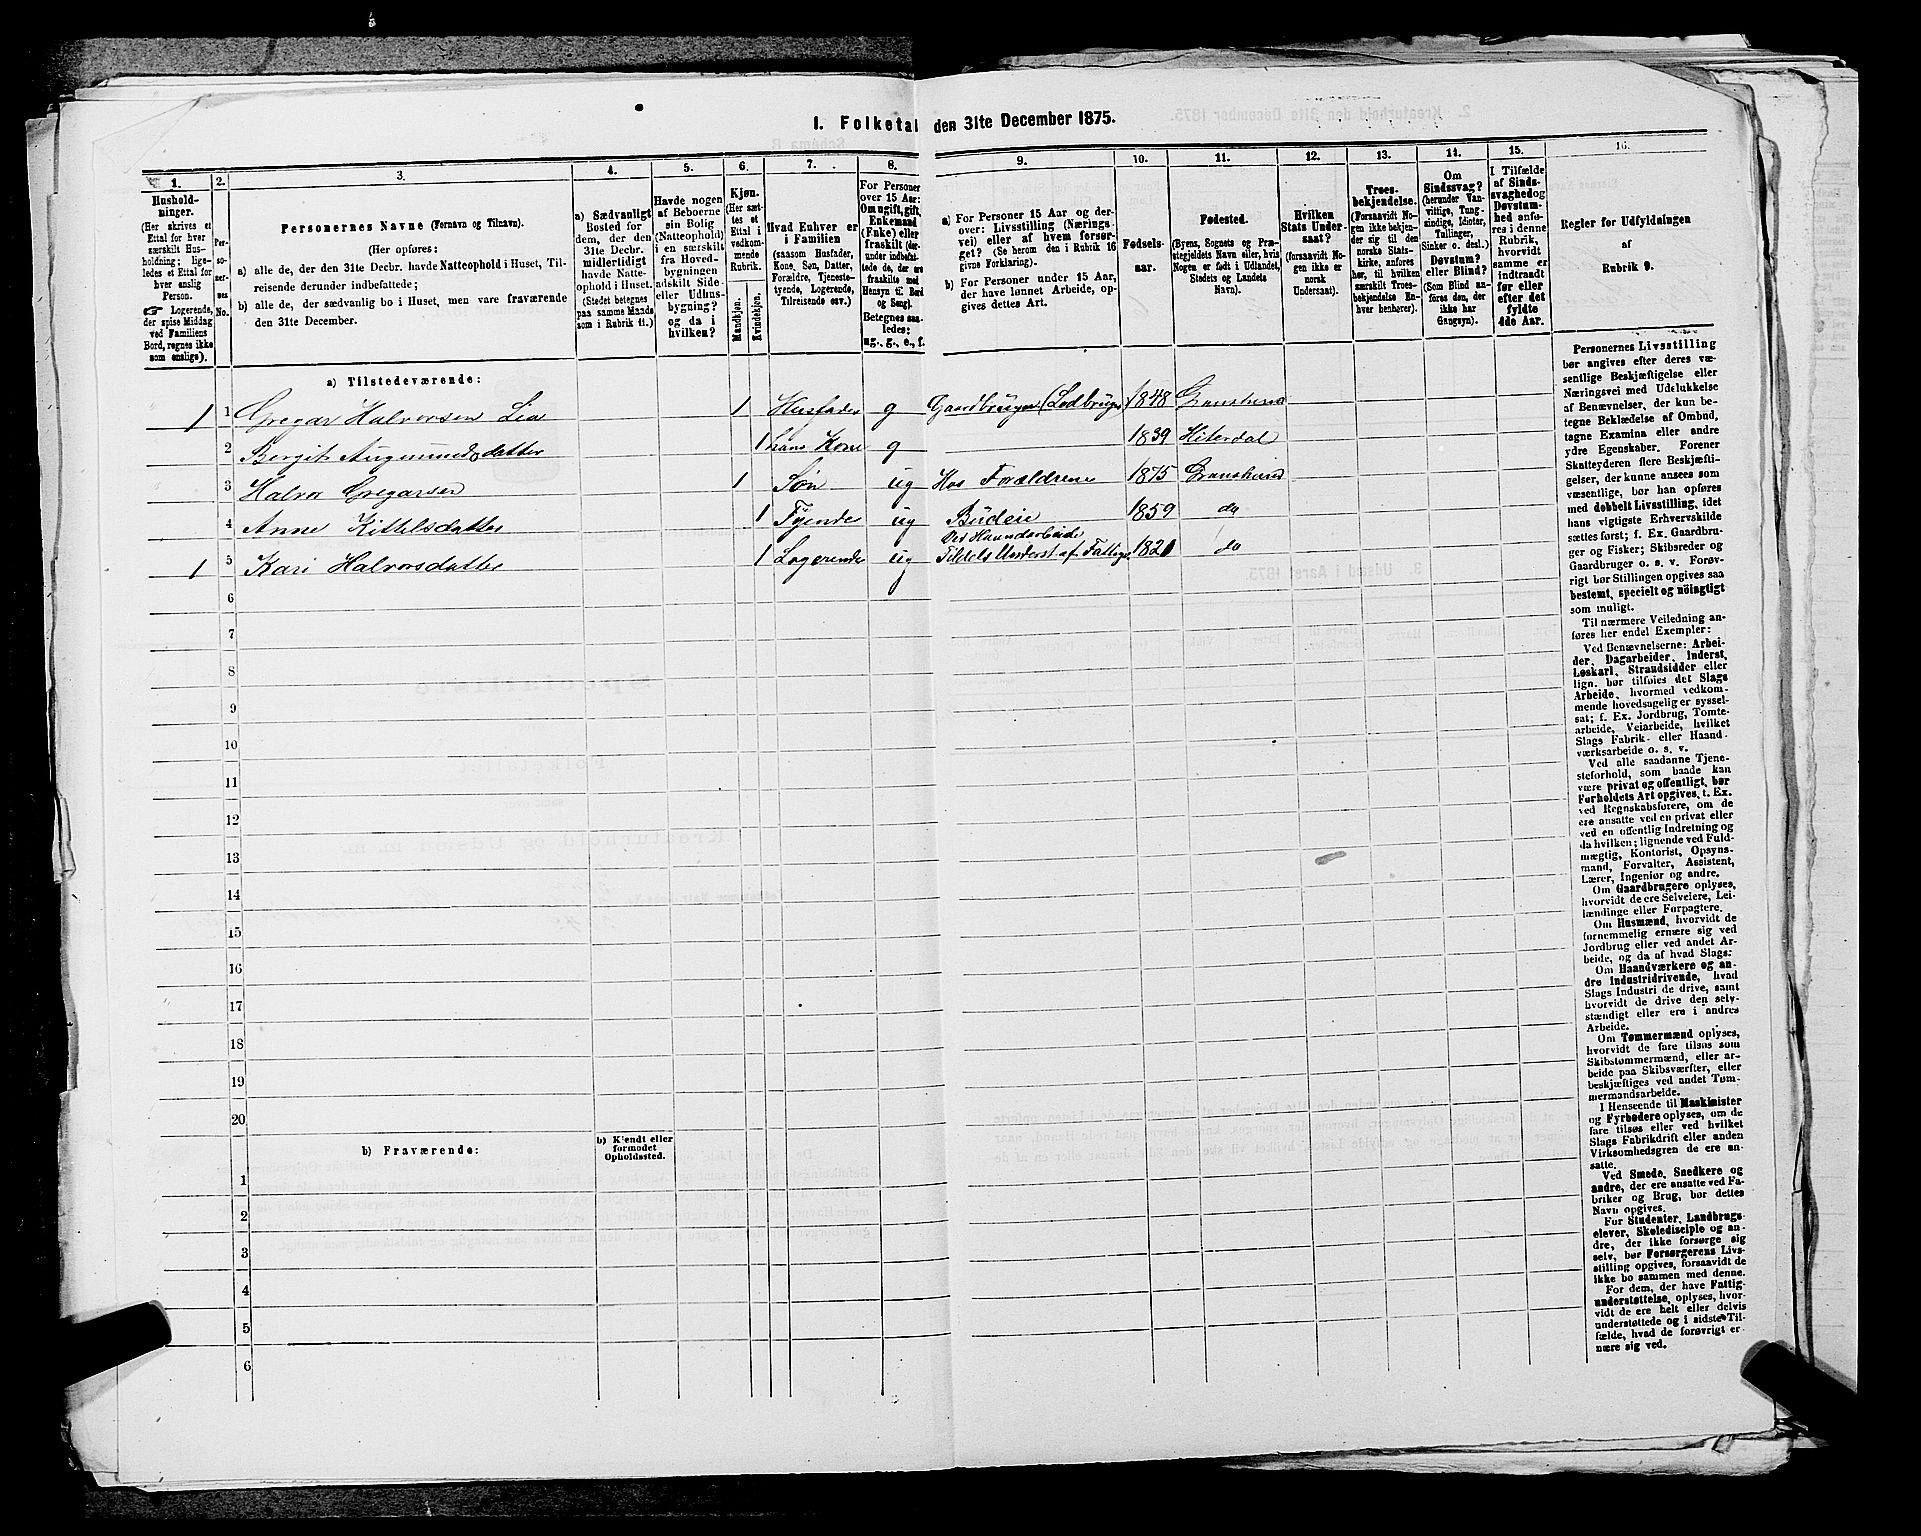 I. Folketal den 31te December 1875.
1. 2. 3. 4. 5. 6. 7. 8. 9. 10. 11. 12. 13. 14. 15. 16.
Hushold-
ninger.
(Her skrives et
Ettal for hver
særskilt Hus-
holdning; lige-
ledes et Ettal for
hver enslig
Person.
☞ Logerende,
der spise Middag
ved Familiens
Bord, regnes ikke
som enslige).
Per-
so-
ner-
nes
No.
Personernes Navne (Fornavn og Tilnavn).
(Her opføres:
a) alle de, der den 31te Decbr. havde Natteophold i Huset, Til-
reisende derunder indbefattede;
b) alle de, der sædvanlig bo i Huset, men vare fraværende
den 31te December.
a) Sædvanligt
Bosted for
dem, der den
31te Decbr.
midlertidigt
havde Natte-
ophold i Huset.
(Stedet betegnes
paa samme Maade
som i Rubrik 11.)
Havde nogen
af Beboerne
sin Bolig
(Natteophold)
i en særskilt
fra Hoved-
bygningen
adskilt Side-
eller Udhus-
bygning?
og da i
hvilken?
Kjøn.
(Her sæt-
tes et
Ettal i
vedkom-
mende
Rubrik.
Mandkjøn.
Kvindekjøn.
Hvad Enhver er
i Familien
(saasom Husfader,
Kone, Søn, Datter,
Forældre, Tjeneste-
tyende, Logerende,
Tilreisende osv.)
For Personer
over 15 Aar:
Om ugift, gift,
Enkemand
(Enke) eller
fraskilt (der-
under indbefat-
tede de, der ere
fraskilte med
Hensyn til Bord
og Seng).
Betegnes saa-
ledes:
ug., g., e., f.
a) For Personer 15 Aar og der-
over: Livsstilling (Nærings-
vei) eller af hvem forsør-
get? (Se herom den i Rubrik 16
givne Forklaring).
b) For Personer under 15 Aar,
der have lønnet Arbeide, op-
gives dettes Art.
Fødsels-
aar.
Fødested.
(Byens, Sognets og Præ-
stegjeldets Navn, eller, hvis
Nogen er født i Udlandet,
Stedets og Landets
Navn).
Hvilken
Stats Under-
saat?
(forsaavidt No-
gen ikke er
norsk
Undersaat).
Troes-
bekjendelse.
(Forsaavidt No-
gen ikke bekjen-
der sig til den
norske Stats-
kirke, anføres
her, til hvilken
særskilt Troes-
bekjendelse En-
hver henhører).
Om
Sindssvag?
(herunder Van-
vittige, Tung-
sindige, Idioter,
Tullinger,
Sinker o. desl.)
Døvstum?
eller Blind?
(Som Blind an-
føres den, der
ikke har
Gangsyn).
I Tilfælde
af Sinds-
svaghed og
Døvstum-
hed anfø-
res i denne
Rubrik,
hvorvidt
samme er
indtraadt
før eller
efter det
fyldte
4de Aar.
Regler for Udfyldningen
af
Rubrik 9.
a) Tilstedeværende:
1 1 Gregar Halvorsen Lia 1 Husfader g Gaardbruger (Lodbruger) 1848 Gransherad
2 Bergit Augmundsdatter 1 hans Kone g 1839 Hiterdal
3 Halvor Gregarsen 1 Søn ug Hos Forældrene 1875 Gransherad
4 Anne Kittelsdatter 1 Tyende ug Budeie 1859 do
Ved Haandarbeide
1 5 Kari Halvorsdatter 1 Logerende ug Tildels Underst. af Fattigv. 1821 do
6
7
8
9
10
11
12
13
14
15
16
17
18
19
20
b) Fraværende:
b) Kjendt eller
formodet
Opholdssted.
1
2
3
4
5
6
Personernes Livsstilling
bør angives efter deres væ-
sentlige Beskjæftigelse eller
Næringsvei med Udelukkelse
af Benævnelser, der kun be-
tegne Beklædelse af Ombud,
tagne Examina eller andre
ydre Egenskaber. Forener
Skatteyderen flere Beskjæfti-
gelser, der kunne ansees som
væsentlige, bør han opføres
med dobbelt Livsstilling, idet
hans vigtigste Erhvervskilde
sættes først; f. Ex. Gaardbru-
ger og Fisker; Skibsreder og
Gaardbruger o. s. v. Forøv-
rigt bør Stillingen opgives saa
bestemt, specielt og nöiagtigt
som muligt.
Til nærmere Veiledning an-
føres her endel Exempler:
Ved Benævnelserne: Arbei-
der, Dagarbeider, Inderst,
Løskarl, Strandsidder eller
lign. bør tilføies det Slags
Arbeide, hvormed vedkom-
mende hovedsagelig er syssel-
sat; f. Ex. Jordbrug, Tomte-
arbeide, Veiarbeide, hvilket
Slags Fabrik- eller Haand-
værksarbeide o. s. v.
Ved alle saadanne Tjene-
steforhold, som baade kan
være privat og offentligt, bør
Forholdets Art opgives, t. Ex.
ved Regnskabsførere, om de
ere ansatte ved en privat eller
ved en offentlig Indretning og
da hvilken; lignende ved Fuld-
mægtig, Kontorist, Opsyns-
mand, Forvalter, Assistent,
Lærer, Ingeniør og andre.
Om Gaardbrugere oplyses,
hvorvidt de ere Selveiere, Lei-
lændinge eller Forpagtere.
Om Husmænd, hvorvidt de
fornemmelig ernære sig ved
Jordbrug eller ved andet Ar-
beide, og da af hvad Slags.
Om Haandværkere og an-
dre Industridrivende, hvad
Slags Industri de drive, samt
hvorvidt de drive den selv-
stændigt eller ere i andres
Arbeide.
Om Tømmermænd oplyses,
hvorvidt de fare tilsøs som
Skibstømmermænd, eller ar-
beide paa Skibsværfter, eller
beskjæftiges ved andet Tøm-
mermandsarbeide.
I Henseende til Maskinister
og Fyrbødere oplyses, om de
fare tilsøs eller ved hvilket
Slags Fabrikdrift eller anden
Virksomhedsgren de ere an-
satte.
Ved Smede, Snedkere og
andre, der ere ansatte ved Fa-
briker og Brug, bør dettes
Navn opgives.
For Studenter, Landbrugs-
elever, Skoledisciple og an-
dre, der ikke forsørge sig
selv, bør Forsørgerens Livs-
stilling opgives, forsaavidt de
ikke bo sammen med denne.
For dem, der have Fattig-
understøttelse, oplyses, hvor-
vidt de ere helt eller delvis
understøttede og i sidste Til-
fælde, hvad de forøvrigt er-
nære sig ved.